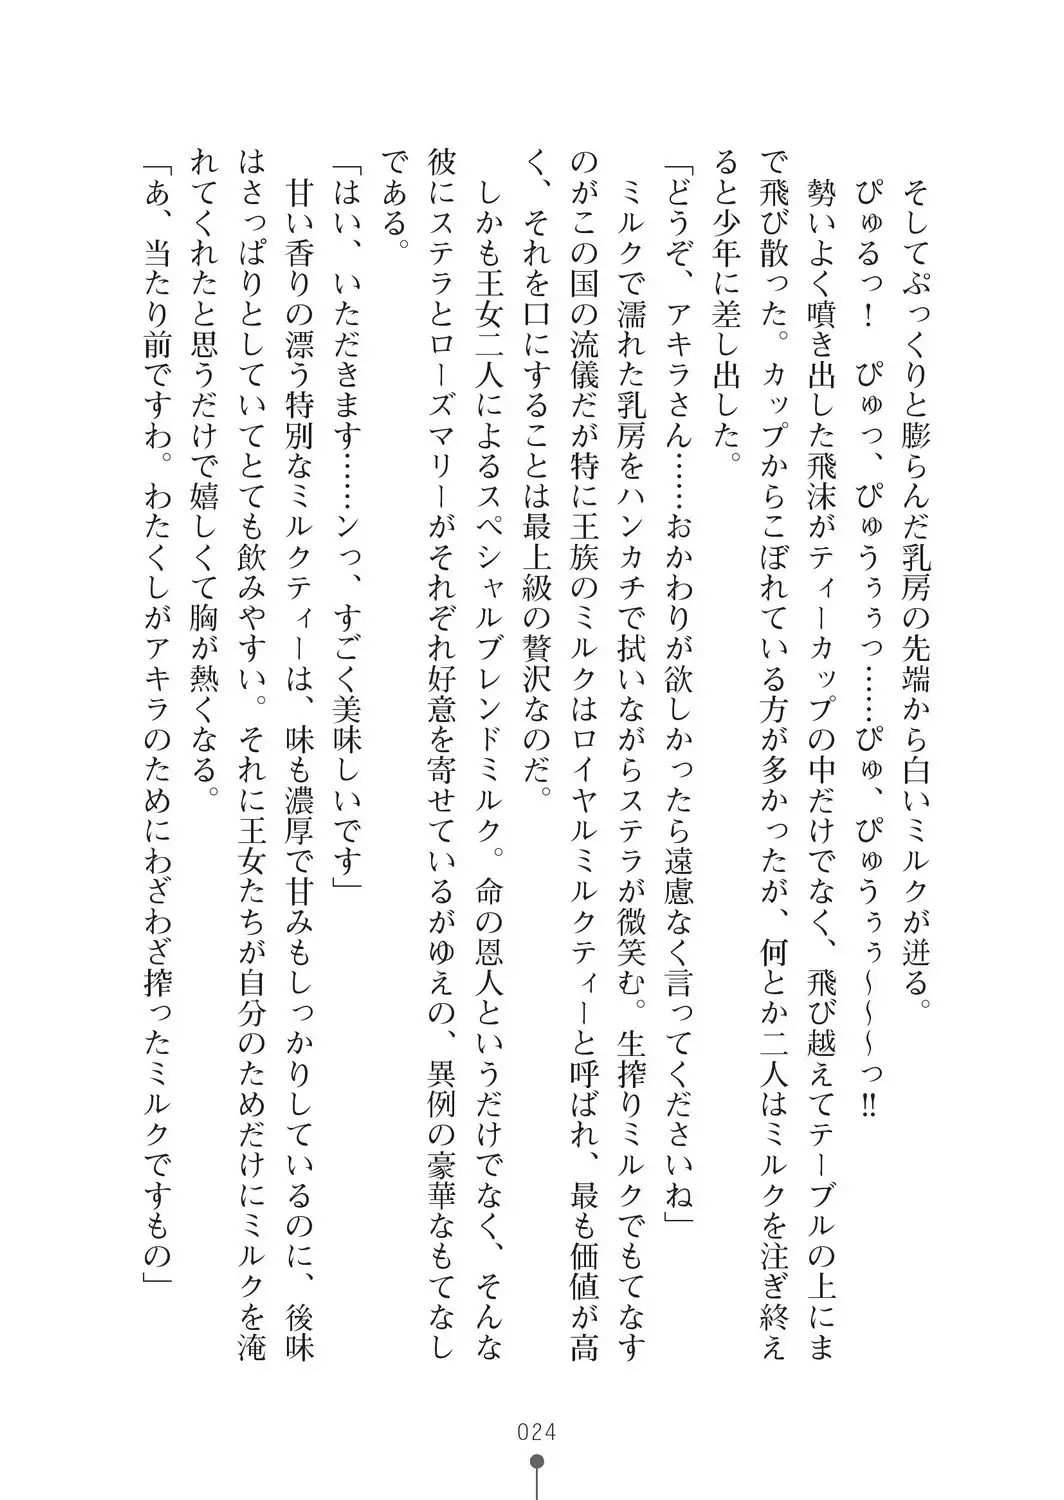 そしてぷっくりと膨らんだ乳房の先端から白いミルクが迸る。
ぴゅるっ！　ぴゅっ、ぴゅうぅぅっ……ぴゅ、ぴゅうぅぅ～～～っ‼
勢いよく噴き出した飛沫がティーカップの中だけでなく、飛び越えてテーブルの上にま
で飛び散った。カップからこぼれている方が多かったが、何とか二人はミルクを注ぎ終え
ると少年に差し出した。
「どうぞ、アキラさん……おかわりが欲しかったら遠慮なく言ってくださいね」
ミルクで濡れた乳房をハンカチで拭いながらステラが微笑む。生搾りミルクでもてなす
のがこの国の流儀だが特に王族のミルクはロイヤルミルクティーと呼ばれ、最も価値が高
く、それを口にすることは最上級の贅沢なのだ。
しかも王女二人によるスペシャルブレンドミルク。命の恩人というだけでなく、そんな
彼にステラとローズマリーがそれぞれ好意を寄せているがゆえの、異例の豪華なもてなし
である。
「はい、いただきます……ンっ、すごく美味しいです」
甘い香りの漂う特別なミルクティーは、味も濃厚で甘みもしっかりしているのに、後味
はさっぱりとしていてとても飲みやすい。それに王女たちが自分のためだけにミルクを淹
れてくれたと思うだけで嬉しくて胸が熱くなる。
「あ、当たり前ですわ。わたくしがアキラのためにわざわざ搾ったミルクですもの」
024